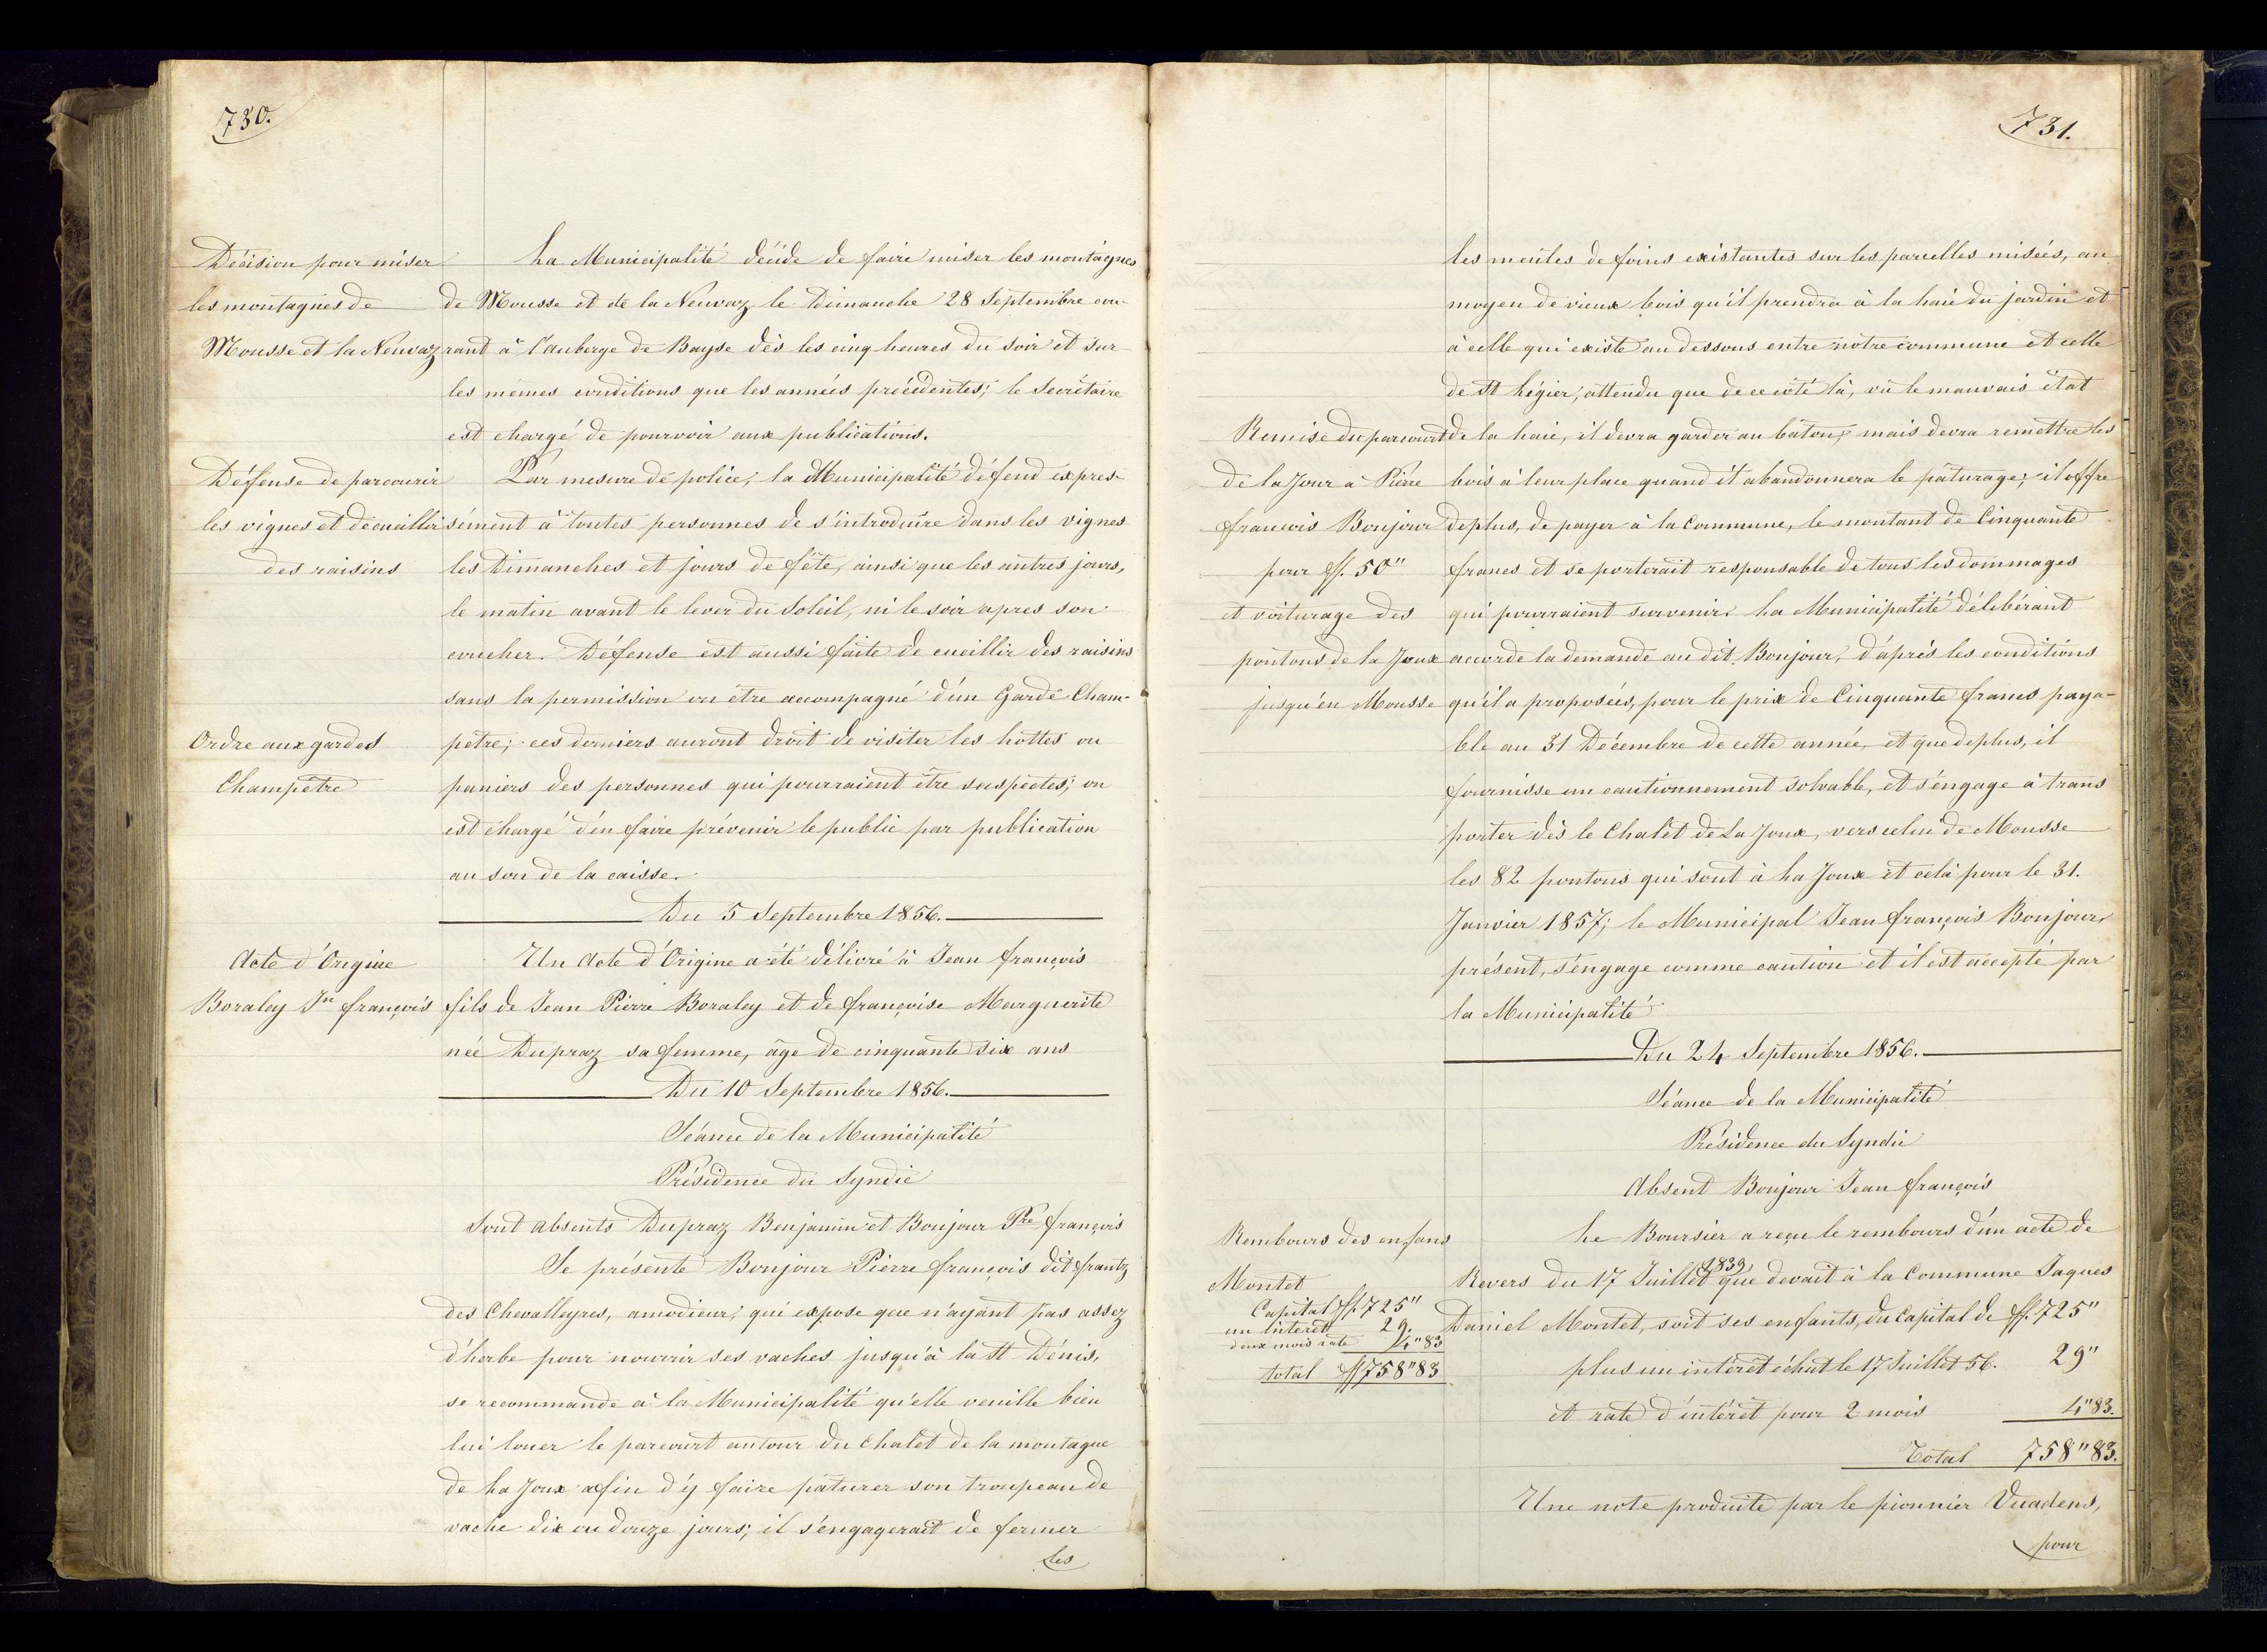 730.
Décision pour miser
les montagnes de
Mousse et la Neuvaz
La Municipalité décide de faire miser les montagnes
de Mousse et de la Neuvaz le Dimanche 28 Septembre cou-
rant à l'auberge de Bayse dès les cinq heures du soir et sur
les mêmes conditions que les années précédentes; le Secrétaire
est chargé de pourvoir aux publications.
Défense de parcourir
les vignes et de cueillir
des raisins
Par mesure de police, la Municipalité défend expres-
sément à toutes personnes de s'introduire dans les vignes
les Dimanches et jours de fête, ainsi que les autres jours,
le matin avant le lever du Soleil, ni le soir apres son
coucher. Défense est aussi faite de cueillir des raisins
sans la permission ou être accompagné d'un Garde Cham-
Ordre aux gardes
Champêtre
pêtre; ces derniers auront droit de visiter les hottes ou
paniers des personnes qui pourraient être suspectes; on
est chargé d'en faire prévenir le public par publication
au son de la caisse.
Du 5 Septembre 1856.
Acte d'Origine
Boraley Jn françois
Un Acte d'Origine a été délivré à Jean françois
fils de Jean Pierre Boraley et de françoise Marguerite
née Dupraz sa femme, âge de cinquante six ans
Du 10 Septembre 1856.
Séance de la Municipalité
Présidence du Syndic
Sont absents Dupraz Benjamin et Bonjour Pre françois
Se présente Bonjour Pierre françois dit frantz
des Chevalleyres, amodieur, qui expose que n'ayant pas assez
d'herbe pour nourrir ses vaches jusqu'à la St Dénis,
se recommande à la Municipalité qu'elle veuille bien
lui louer le parcourt autour du Chalet de la montagne
de La Joux afin d'y faire pâturer son troupeau de
vache dix ou douze jours; il s'engagerait de fermer
Les
731.
les meûles de foins existantes sur les parcelles misées, au
moyen de vieux bois qu'il prendra à la haie du jardin et
à celle qui existe au dessous entre notre commune et celle
de St Légier, attendu que de ce côté là, vû le mauvais état
Remise du parcourt
de la Joux à Pierre
francois Bonjour
pour ff. 50"
et voiturage des
pontons de la Joux
jusqu'en Mousse
de la haie, il devra garder au bâton, mais devra remettre les
bois à leur place quand il abandonnera le pâturage; il offre
deplus, de payer à la Commune, le montant de Cinquante
francs et se porterait responsable de tous les dommages
qui pourraient survenir. La Municipalité délibérant
accorde la demande au dit Bonjour, d'après les conditions
qu'il a proposées, pour le prix de Cinquante francs paya-
ble au 31 Décembre de cette année, et que deplus, il
fournisse un cautionnement solvable, et s'engage à trans
porter dès le Chalet de La Joux, vers celui de Mousse
les 82 pontons qui sont à La Joux et celà pour le 31.
Janvier 1857; le Municipal Jean françois Bonjour,
présent, s'engage comme caution et il est accepté par
la Municipalité
Du 24 Septembre 1856.
Séance de la Municipalité
Présidence du Syndic
Absent Bonjour Jean françois
Rembours des enfans
Montet
Capital ff. 725"
un Intérêt 29.
deux mois rate 4"83
total ff 758"83
Le Boursier a reçu le rembours d'un acte de
Revers du 17 Juillet 1839 que devait à la Commune Jaques
Daniel Montet, soit ses enfants, du Capital de ff. 725"
plus un intérêt échut le 17 Juillet 56. 29"
et rate d'intérêt pour 2 mois 4"83.
Total 758"83.
Une note produite par le pionnier Vuadens,
pour